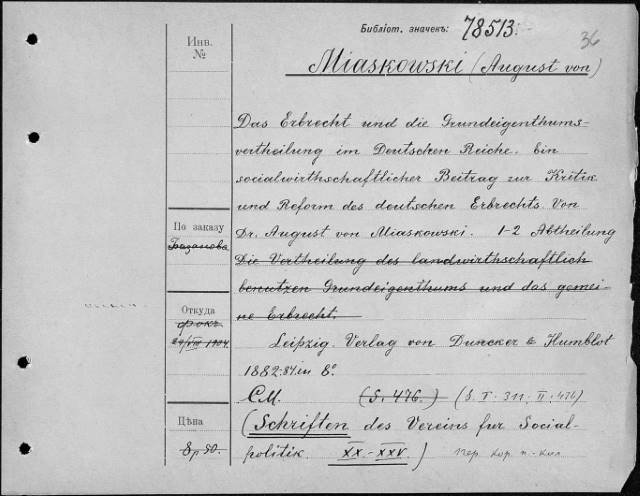 Библіот. значекъ: 78513.
36
Инв.
№
Miaskowski (August von)
Das Erbrecht und die Grundeigenthums-
vertheilung im Deutschen Reiche. Ein
socialwirthschaftlicher Beitrag zur Kritik
und Reform des deutschen Erbrechts. Von
Dr. August von Miaskowski. 1-2 Abtheilung
Die Vertheilung des landwirthschaftlich
benutzen Grundeigenthums und das gemei-
ne Erbrecht.
Leipzig. Verlag von Duncker & Humblot
1882-84 in 8º
С.М. (S. 476.) (S. I. 311. II. 476)
(Schriften des Vereins fur Social-
politik XX.-XXV.) пер. кор. п.-кол
По заказу
Базанова
Откуда
фокъ
Цѣна
8 р 50.